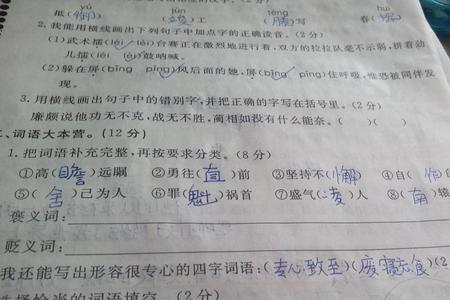 yù jùn téng huī
抵(御) (竣)工 (腾)写 春(晖)
2. 我能用横线画出下列句子中加点字的正确读音。(2分)
(1)武术擂(léi lèi)台赛正在激烈地进行着,双方的拉拉队毫不示弱,拼着劲
儿擂(léi lèi)鼓呐喊。
(2)躲在屏(bǐng píng)风后面的她,屏(bǐng píng)住呼吸,惟恐被同伴发
现。
3. 用横线画出句子中的错别字,并把正确的字写在括号里。(2分)
廉颇说他功无不克,战无不胜,蔺相如没有什么能奈。( )( )
二、词语大本营。(12分)
1. 把词语补充完整,再按要求分类。(8分)
①高(瞻)远瞩 ②勇往(直)前 ③坚持不(懈) ④自(
⑤(舍)己为人 ⑥罪(魁)祸首 ⑦盛气(凌)人 ⑧(南)辕
褒义词:
贬义词:
我还能写出形容很专心的四字词语:(专心致至)(废寝忘食)(2
选择恰当的词语填空。(2分)